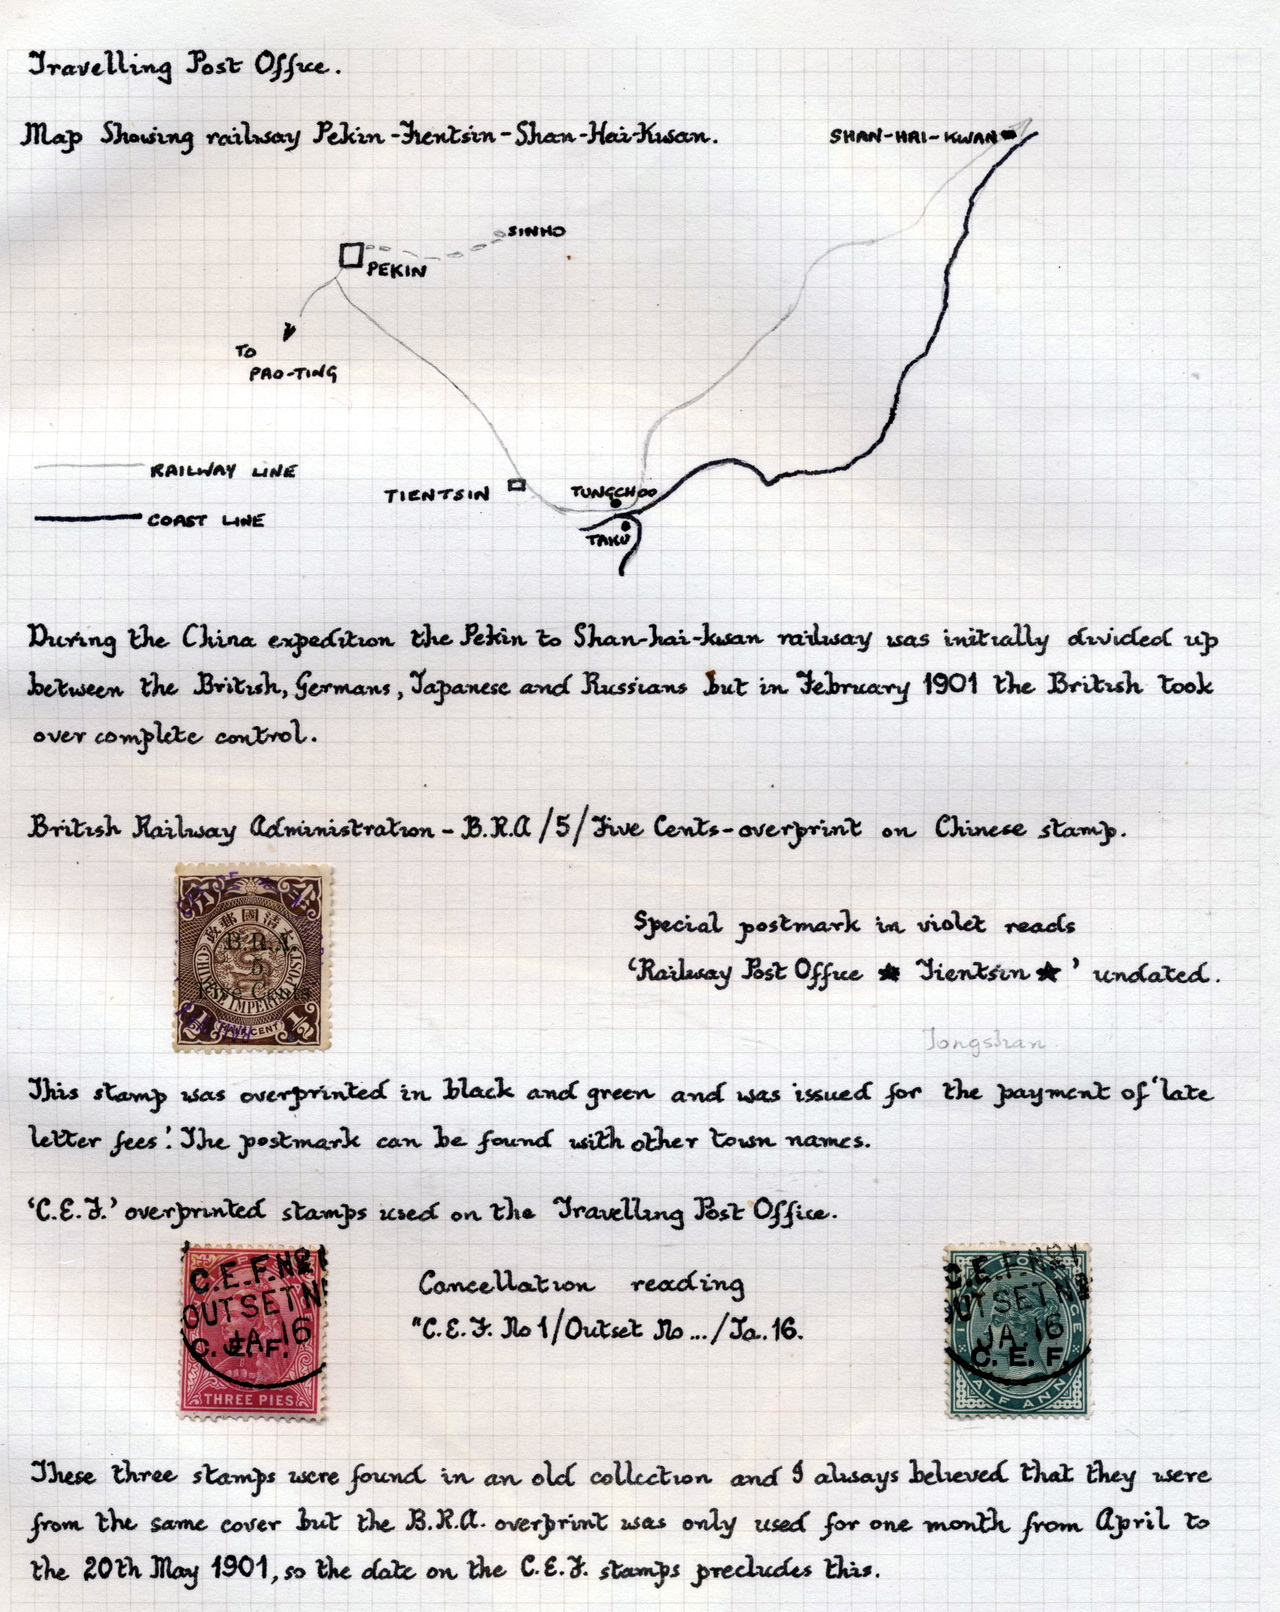 Travelling Post Office.
Map Showing railway Pekin-Tientsin-Shan-Hai-Kwan.
SHAN-HAI-KWAN
SINHO
PEKIN
TO
PAO-TING
RAILWAY LINE
TIENTSIN
TUNGCHOO
COAST LINE
TAKU
During the China expedition the Pekin to Shan-hai-kwan railway was initially divided up
between the British, Germans, Japanese and Russians but in February 1901 the British took
over complete control.
British Railway Administration - B.R.A/5/Five Cents-overprint on Chinese stamp.
大清國郵政
B.R.A.
5
CHINESE IMPERIAL POST
1/2 CENT 1/2
Special postmark in violet reads
'Railway Post Office ★ Tientsin ★' undated.
Tongshan
This stamp was overprinted in black and green and was issued for the payment of 'late
letter fees'. The postmark can be found with other town names.
'C.E.F.' overprinted stamps used on the Travelling Post Office.
C.E.F. No 1
OUTSET No
JA. 16
C.E.F.
THREE PIES
Cancellation reading
"C.E.F. No 1/Outset No .../Ja. 16.
C.E.F. No 1
OUTSET No
JA. 16
C.E.F.
HALF ANNA
These three stamps were found in an old collection and I always believed that they were
from the same cover but the B.R.A. overprint was only used for one month from April to
the 20th May 1901, so the date on the C.E.F. stamps precludes this.